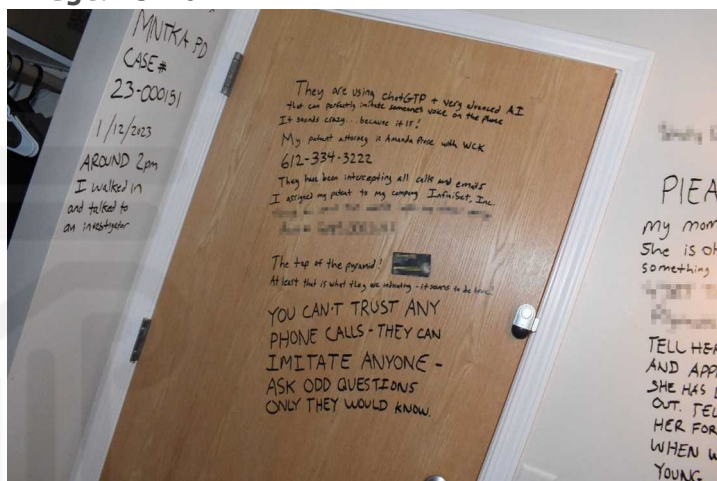 MNTKA PD
CASE #
23-000151
1/12/2023
AROUND 2pm
I walked in
and talked to
an investigator
They are using ChatGTP + very advanced AI
that can perfectly imitate someones voice on the phone
It sounds crazy... because it is!
My patent attorney is Amanda Prose with WCK
612-334-3222
They have been intercepting all calls and emails
I assigned my patent to my company InfiniSet, Inc.
The top of the pyramid!
At least that is what they are indicating - it seems to be true!
YOU CAN'T TRUST ANY
PHONE CALLS - THEY CAN
IMITATE ANYONE -
ASK ODD QUESTIONS
ONLY THEY WOULD KNOW.
my mom
She is
something
TELL HER
AND
SHE HAS
OUT.
HER FOR
WHEN
YOUNG